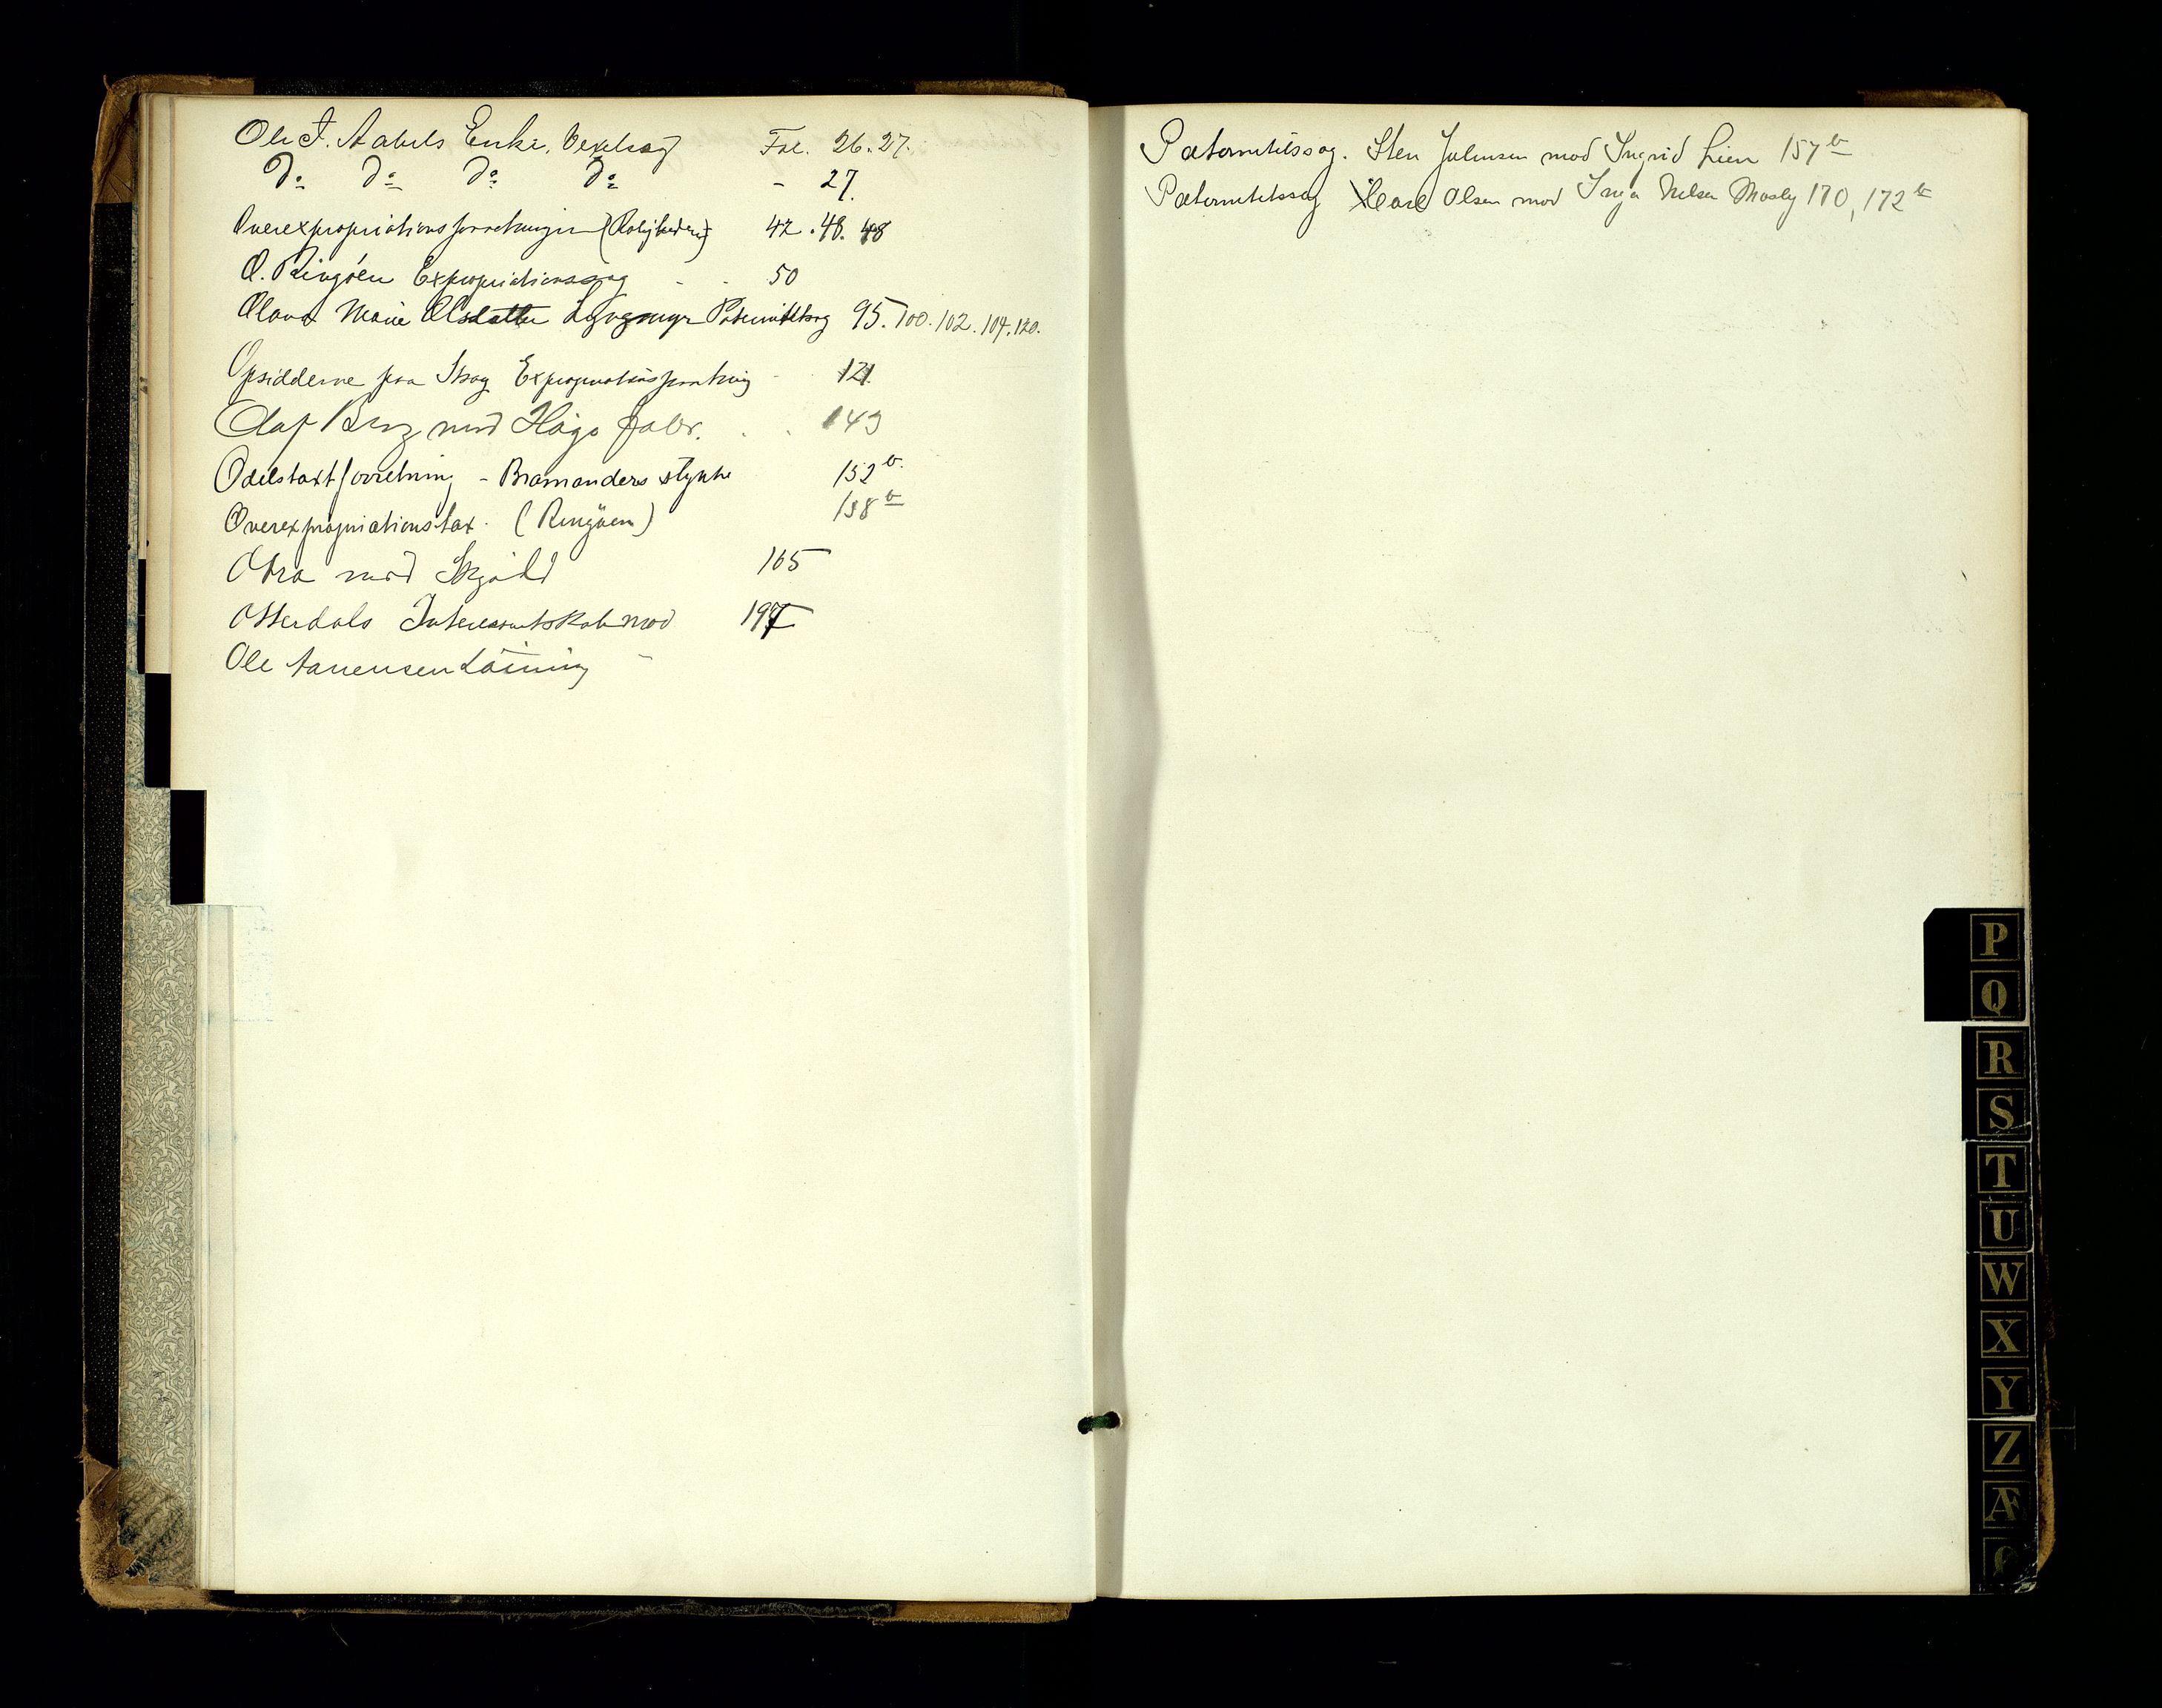 Ole T. Aabels Enke, Vexelsag Fol. 26. 27.
Do Do Do Do - 27.
Overexpropriationsforretninger (Roligheden) 42. 48. 48
O. Ringöen Expropriationssag - - 50
Olava Marie Olsdatter Lyngmyr Paternitetssag 95. 100. 102. 104. 120.
Opsidderne paa Strag Expropriationsforretning - 121.
Olaf Berg mod Høgo fabr. . . 149
Odelstaxtforretning - Bramanders stykke 152b.
Overexpropriationstax. (Ringöen) 158b
Otra mod Skjold 165
Otterdals Interessentskab mod 197
Ole Aanensen Löining -
Paternitetssag. Sten Johnsen mod Ingrid Lien 157b
Paternitetssag Karl Olsen mod Inga Nelsen Mosby 170, 172b
P
Q
R
S
T
U
W
X
Y
Z
Æ